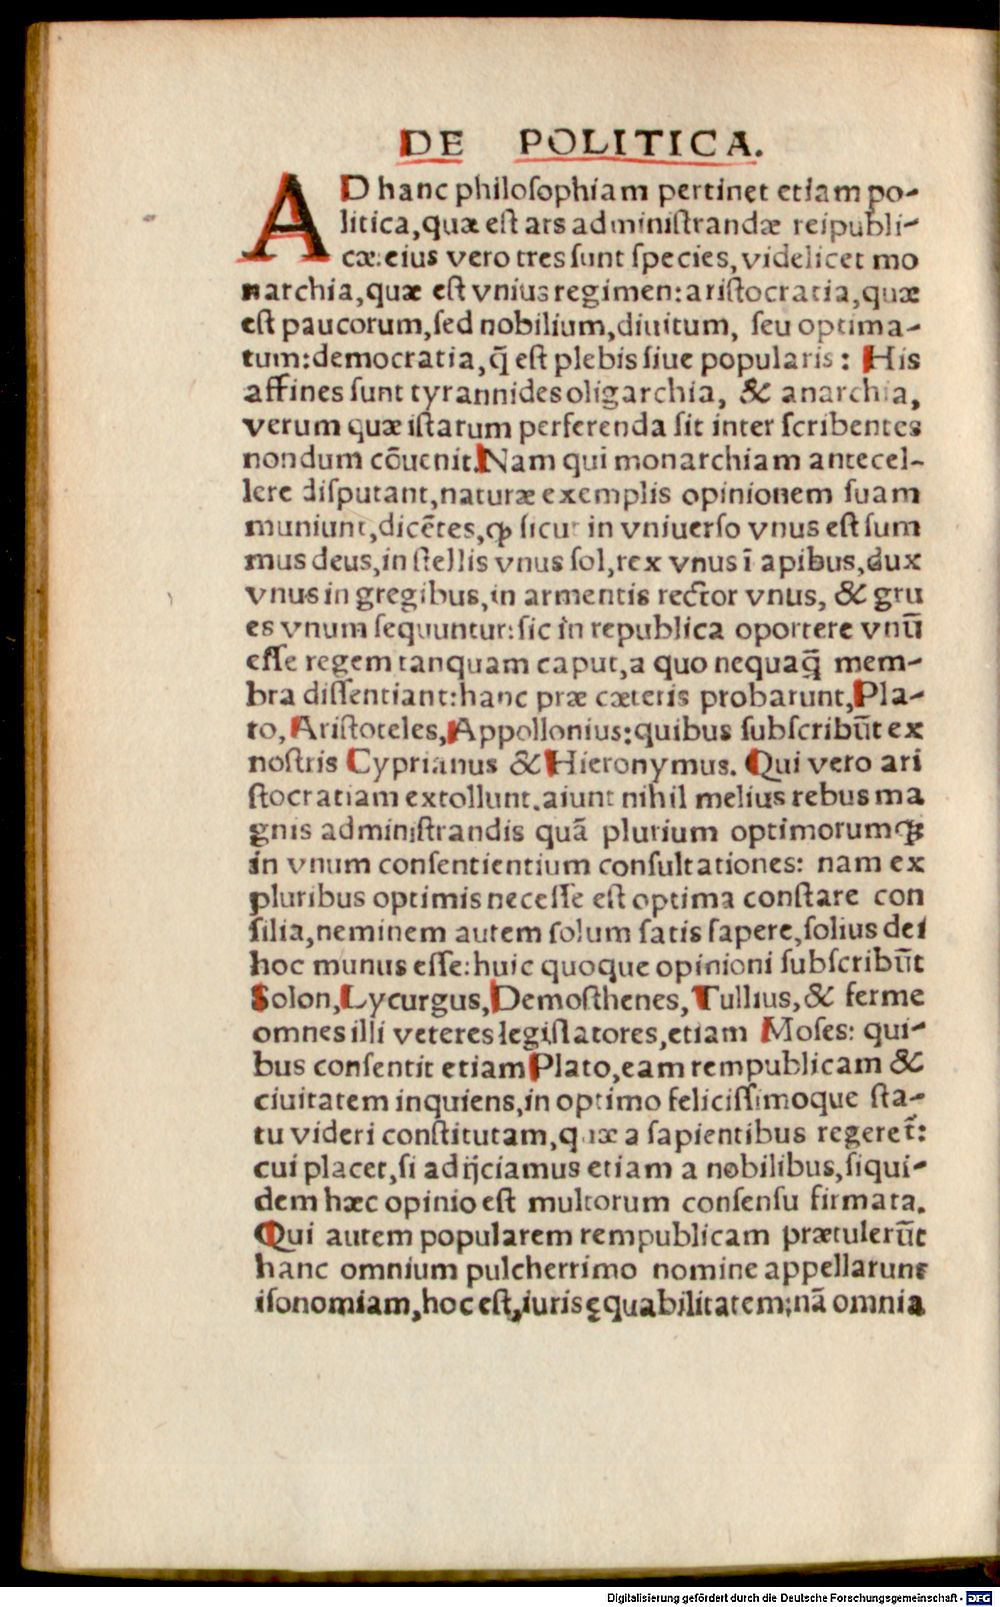 DE POLITICA.
AD hanc philoſophiam pertinet etiam po-
litica,quæ eſt ars adminiſtrandæ reipubli-
cæ:eius vero tres ſunt ſpecies,videlicet mo
narchia,quæ eſt vnius regimen:ariſtocratia,quæ
eſt paucorum,ſed nobilium,diuitum, ſeu optima-
tum:democratia,q̃ eſt plebis ſiue popularis: His
affines ſunt tyrannides oligarchia, & anarchia,
verum quæ iſtarum perferenda ſit inter ſcribentes
nondum cõuenit.Nam qui monarchiam antecel-
lere diſputant,naturæ exemplis opinionem ſuam
muniunt,dicẽtes,ꝙ ſicut in vniuerſo vnus eſt ſum
mus deus,in ſtellis vnus ſol,rex vnus ĩ apibus,dux
vnus in gregibus,in armentis rector vnus, & gru
es vnum ſequuntur:ſic in republica oportere vnũ
eſſe regem tanquam caput,a quo nequaq̃ mem-
bra diſſentiant:hanc præ cæteris probarunt,Pla-
to,Ariſtoteles,Appollonius:quibus ſubſcribũt ex
noſtris Cyprianus & Hieronymus. Qui vero ari
ſtocratiam extollunt.aiunt nihil melius rebus ma
gnis adminiſtrandis quã plurium optimorumqꝫ
in vnum conſentientium conſultationes: nam ex
pluribus optimis neceſſe eſt optima conſtare con
ſilia,neminem autem ſolum ſatis ſapere,ſolius dei
hoc munus eſſe:huic quoque opinioni ſubſcribũt
Solon,Lycurgus,Demoſthenes,Tullius,& ferme
omnes illi veteres legiſlatores,etiam Moſes: qui-
bus conſentit etiam Plato,eam rempublicam &
ciuitatem inquiens,in optimo feliciſſimoque ſta-
tu videri conſtitutam,quæ a ſapientibus regeret̃:
cui placet,ſi adijciamus etiam a nobilibus,ſiqui-
dem hæc opinio eſt multorum conſenſu firmata.
Qui autem popularem rempublicam prætulerũt
hanc omnium pulcherrimo nomine appellarunt
iſonomiam,hoc eſt,iuris ęquabilitatem:nã omnia
Digitalisierung gefördert durch die Deutsche Forschungsgemeinschaft - DFG